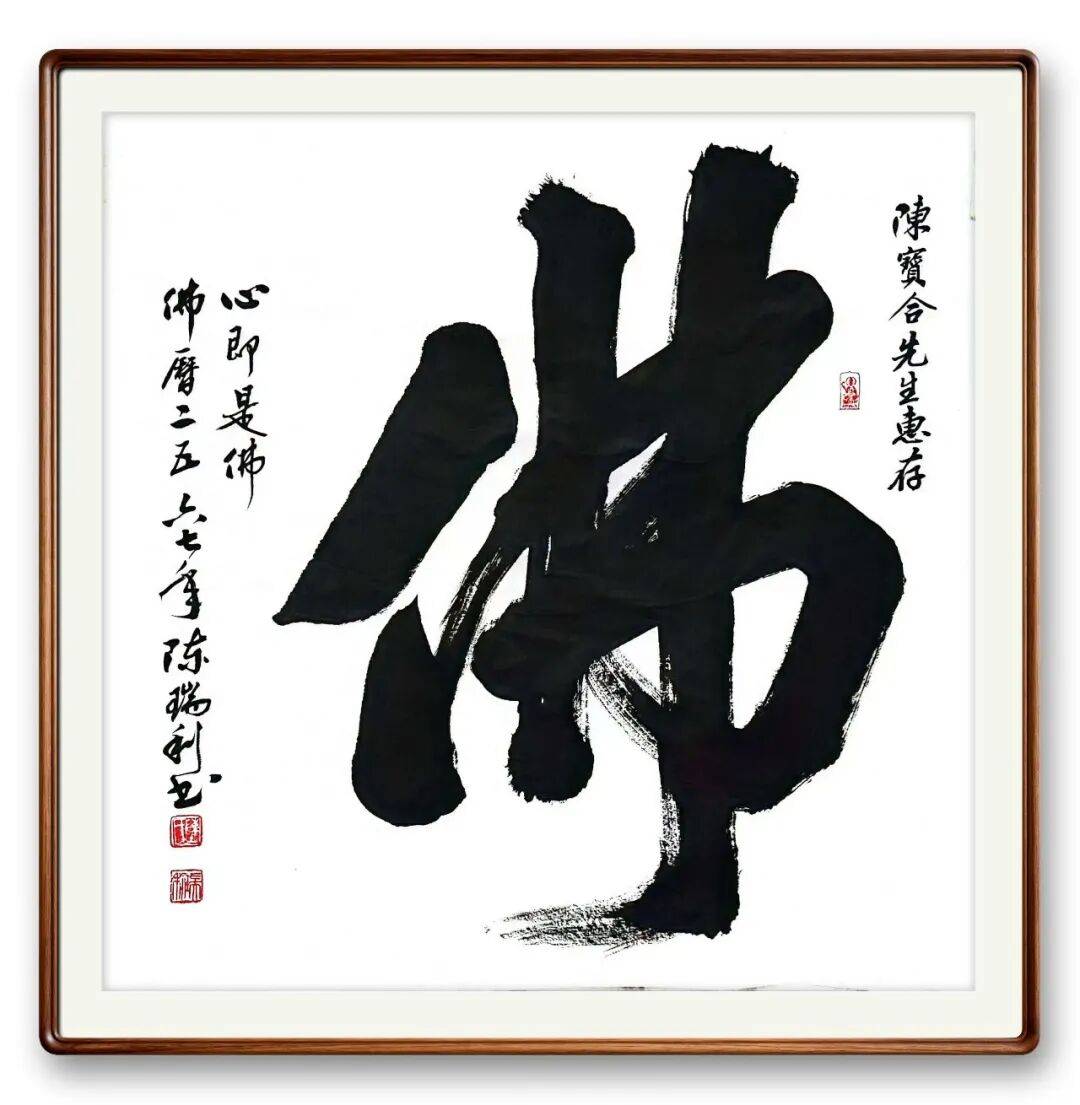 陳寶合先生惠存
佛
心即是佛
佛曆二五六七年陈瑞利书